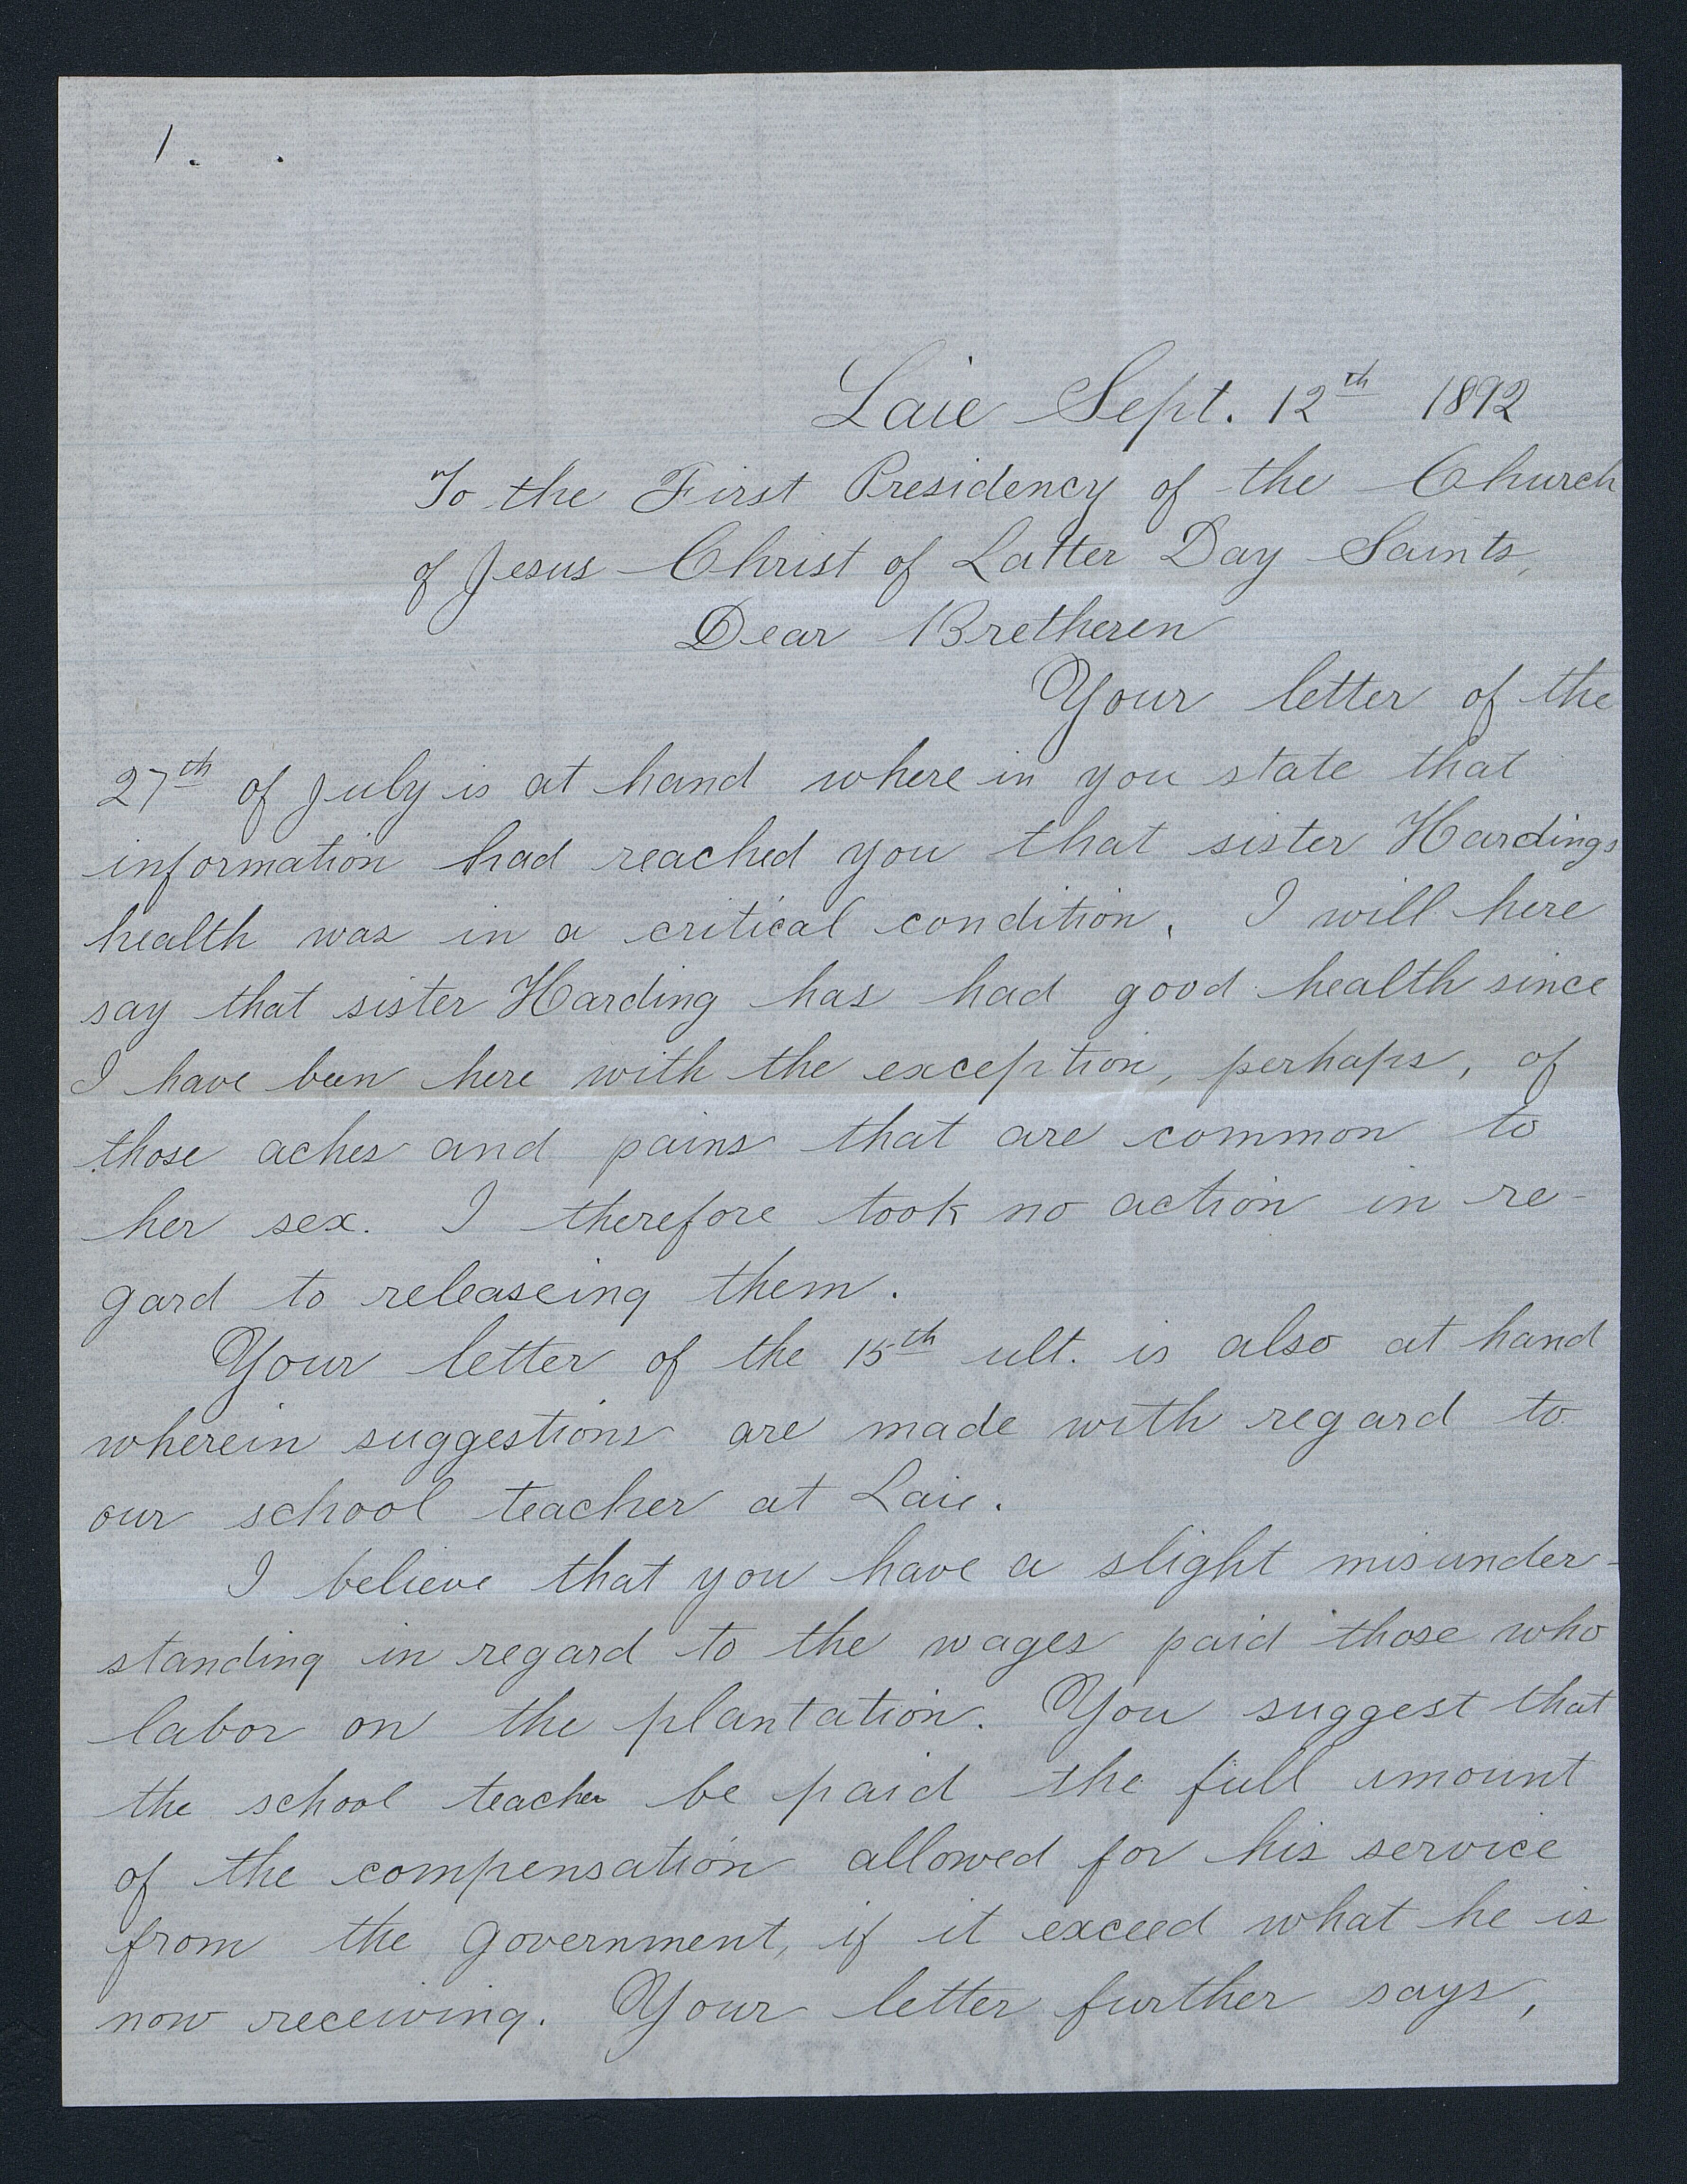 1.
Laie Sept. 12th 1892
To the First Presidency of the Church
of Jesus Christ of Latter Day Saints,
Dear Bretheren
Your letter of the
27th of July is at hand where in you state that
information had reached you that sister Hardings
health was in a critical condition. I will here
say that sister Harding has had good health since
I have been here with the exception, perhaps, of
those aches and pains that are common to
her sex. I therefore took no action in re-
gard to releaseing them.
Your letter of the 15th ult. is also at hand
wherein suggestions are made with regard to
our school teacher at Laie.
I believe that you have a slight misunder-
standing in regard to the wages paid those who
labor on the plantation. You suggest that
the school teacher be paid the full amount
of the compensation allowed for his service
from the government, if it exceed what he is
now receiving. Your letter further says,